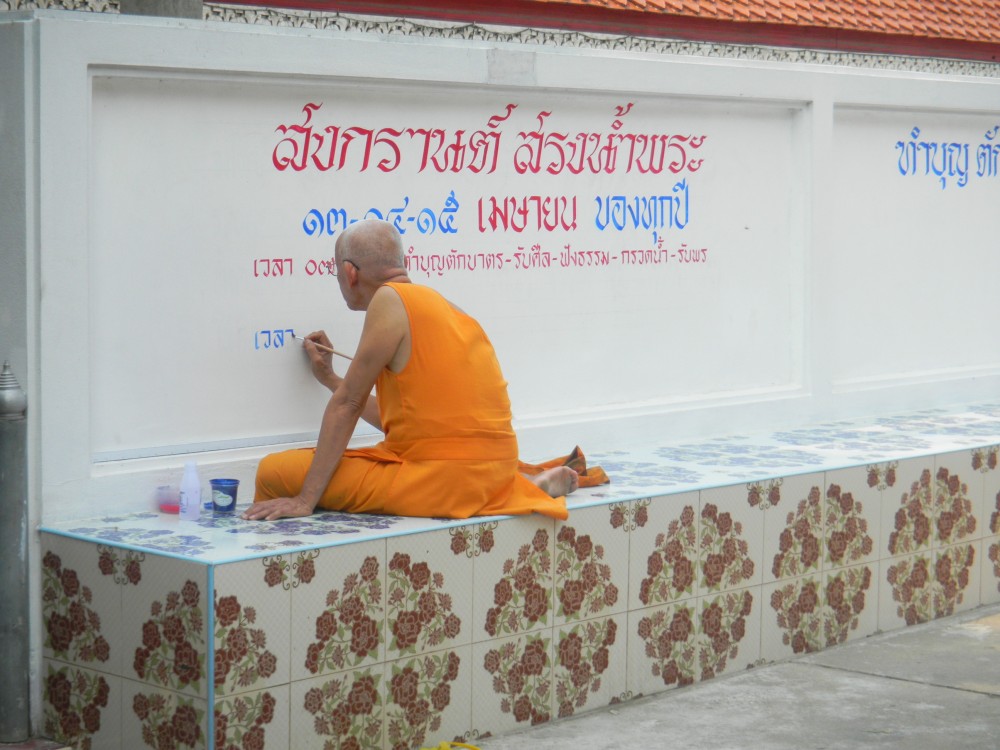 สงกรานต์ สรงน้ำพระ
๑๓-๑๔-๑๕ เมษายน ของทุกปี
เวลา ทำบุญตักบาตร-รับศีล-ฟังธรรม-กรวดน้ำ-รับพร
เวลา
ทำบุญ